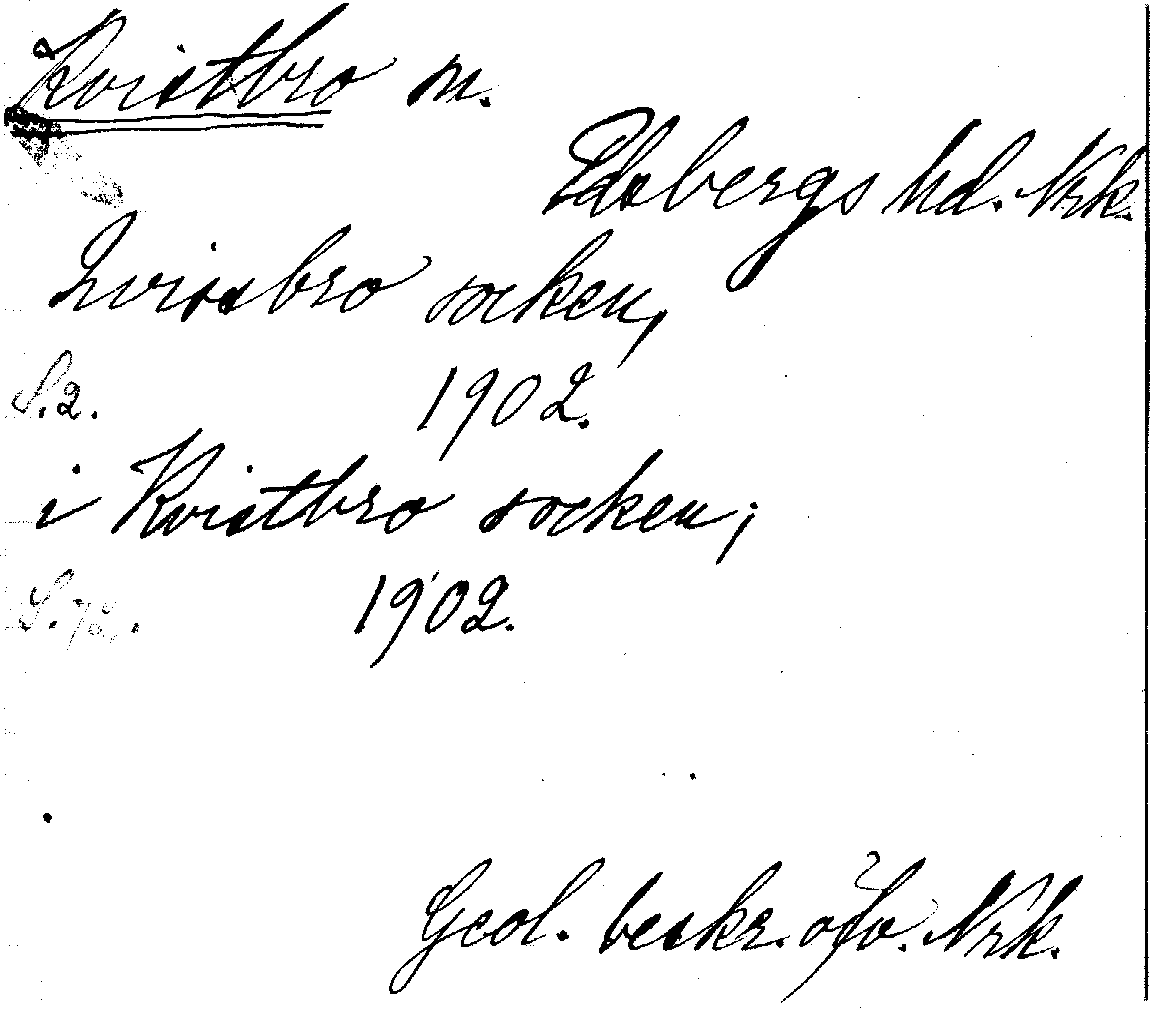 Kvistbro sn.
Edsbergs hd. Nrk.
Qvissbro socken,
S.2. 1902.
i Kvistbro socken;
S.72. 1902.
Geol. beskr. öfv. Nrk.